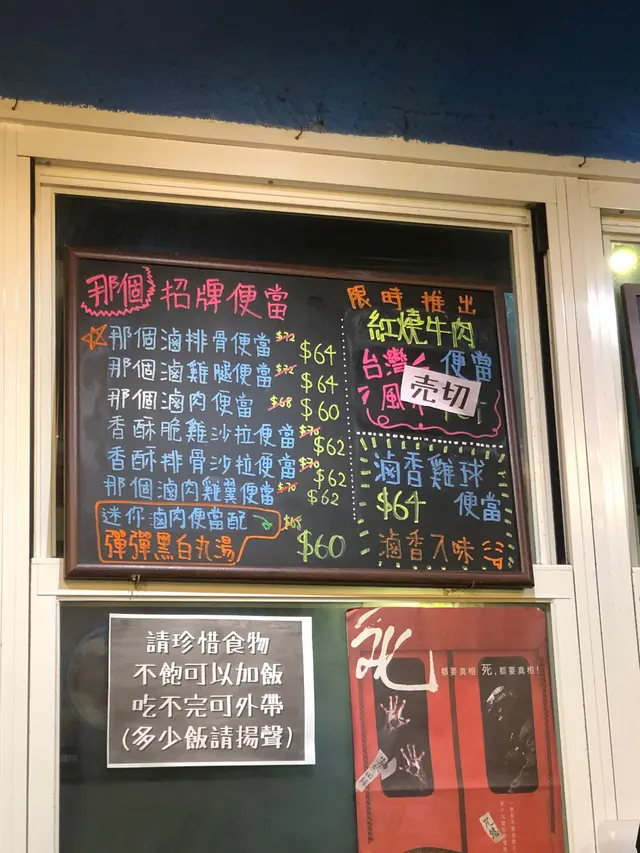 那個 招牌便當
那個滷排骨便當 $72 $64
那個滷雞腿便當 $72 $64
那個滷肉便當 $68 $60
香酥脆雞沙拉便當 $70 $62
香酥排骨沙拉便當 $70 $62
那個滷肉雞翼便當 $70 $62
迷你滷肉便當配 $68
彈彈黑白丸湯 $60
限時推出
紅燒牛肉
台灣 便當
風
売切
滷香雞球
$64 便當
滷香入味
請珍惜食物
不飽可以加飯
吃不完可外帶
(多少飯請揚聲)
死
都要真相 死,都要真相!